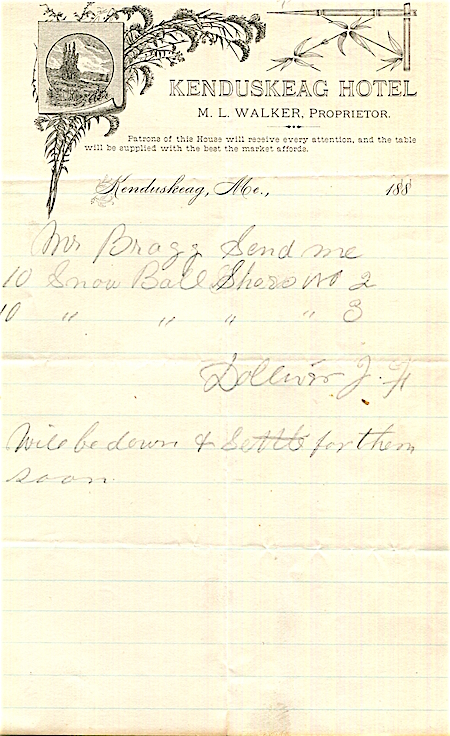 KENDUSKEAG HOTEL
M. L. WALKER, PROPRIETOR.
Patrons of this House will receive every attention, and the table
will be supplied with the best the market affords.
Kenduskeag, Me., 188
Mr Bragg Send me
10 Snow Ball Shoes No 2
10 " " " " 3
Dolliver J. H
Will be down & Settle for them
soon